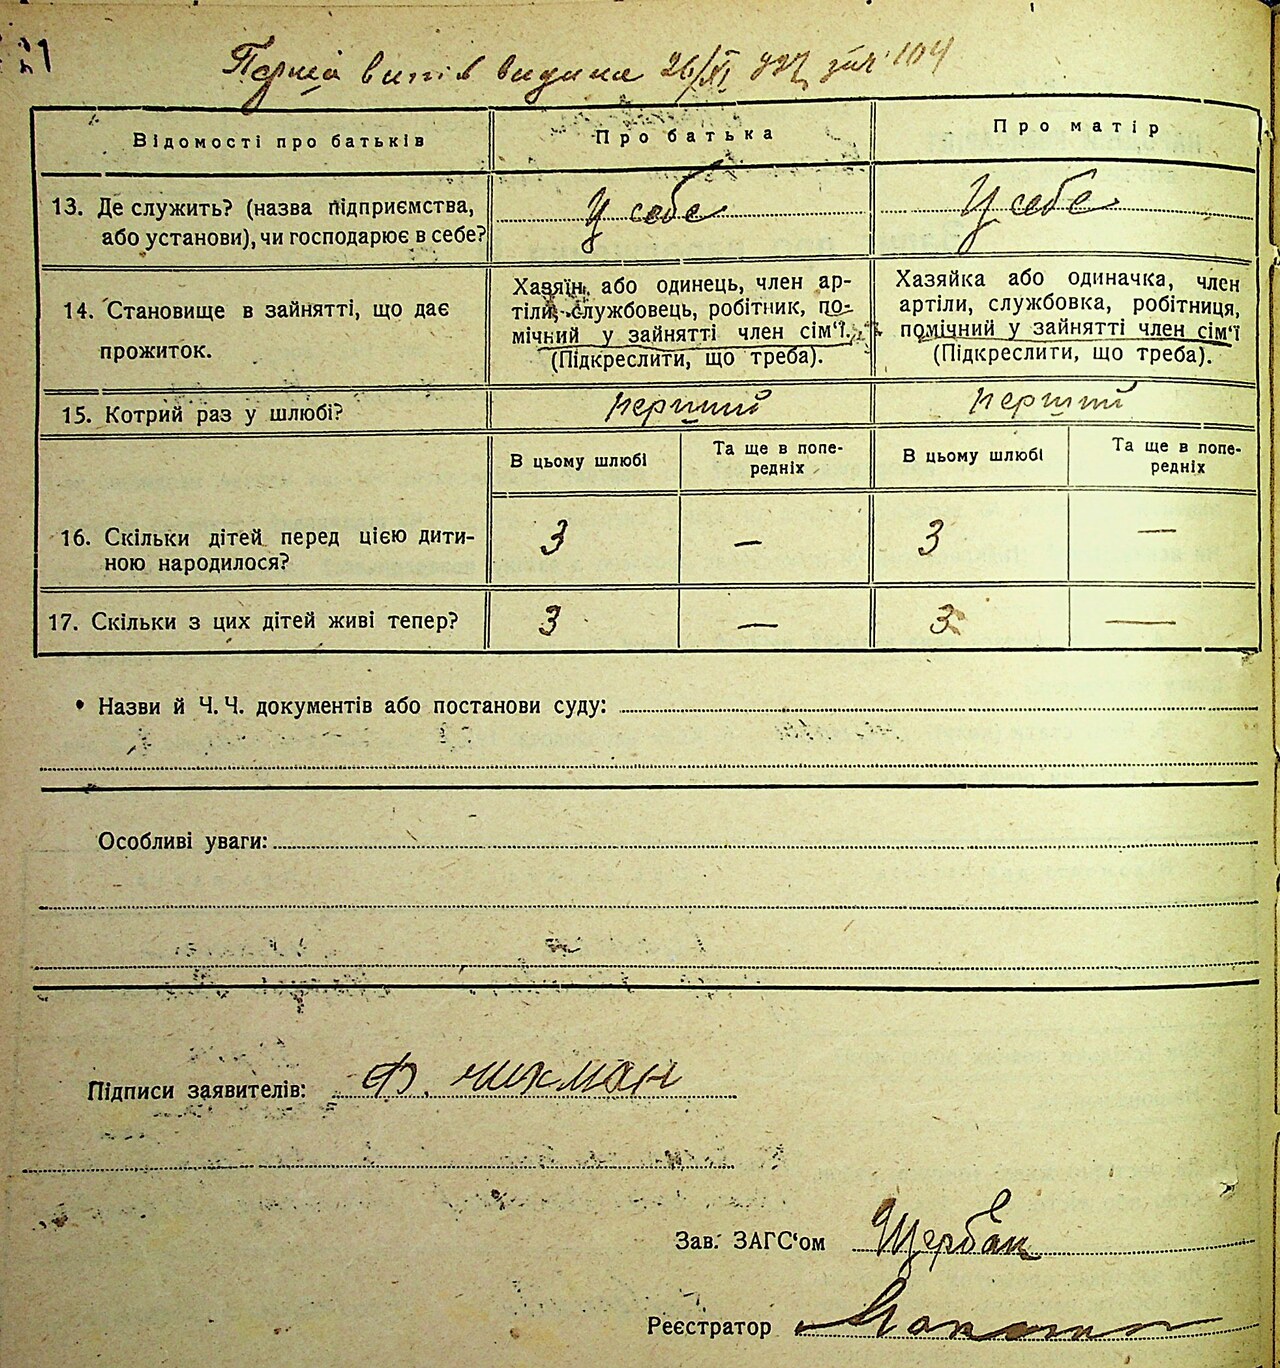 Перший випис видано 26/XI 927 за № 104
Відомості про батьків
Про батька
Про матір
13. Де служить? (назва підприємства, або установи), чи господарює в себе?
У себе
У себе
14. Становище в зайнятті, що дає прожиток.
Хазяїн, або одинець, член ар-
тіли, службовець, робітник, по-
мічний у зайнятті член сім'ї.
(Підкреслити, що треба).
Хазяйка або одиначка, член
артіли, службовка, робітниця,
помічний у зайнятті член сім'ї
(Підкреслити, що треба).
15. Котрий раз у шлюбі?
перший
перший
В цьому шлюбі
Та ще в попе-
редніх
В цьому шлюбі
Та ще в попе-
редніх
16. Скільки дітей перед цією дити-
ною народилося?
3
—
3
—
17. Скільки з цих дітей живі тепер?
3
—
3
—
Назви й Ч. Ч. документів або постанови суду:
Особливі уваги:
Підписи заявителів: Ф. Чикман
Зав. ЗАГС'ом Щербак
Реєстратор